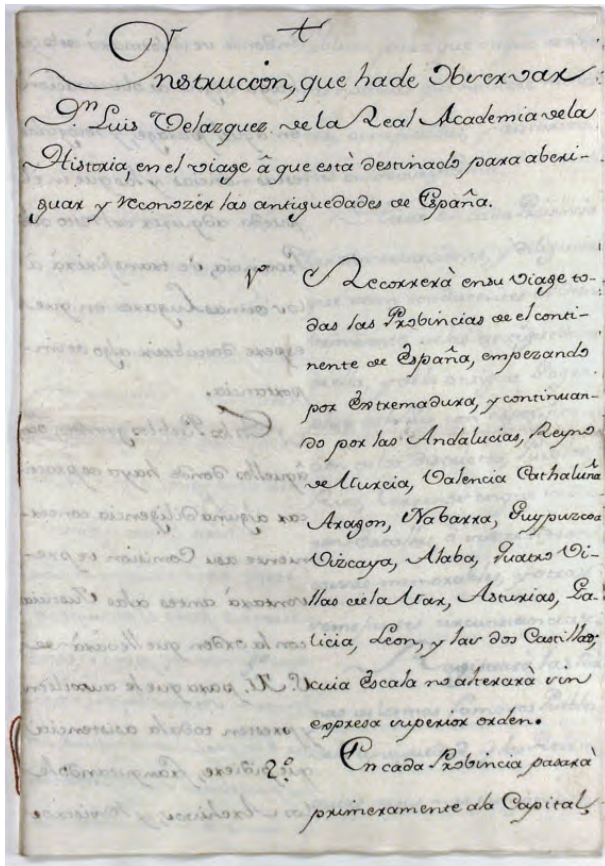 Instruccion, que ha de Observar
D.n Luis Velazquez de la Real Academia de la
Historia, en el viage â que està destinado para aberi-
guar y reconozer las antiguedades de España.
1º Recorrerà en su Viage to-
das las Probincias de el conti-
nente de España, empezando
por Extremadura, y continuan-
do por las Andalucias, Reyno
de Murcia, Valencia Cathaluña
Aragon, Nabarra, Guypuzcoa
Vizcaya, Alaba, Quatro Vi-
llas de la Mar, Asturias, Ga-
licia, Leon, y las dos Castillas;
cuia Escala no alterarà sin
expresa superior orden.
2º. En cada Probincia pasarà
primeramente a la Capital,